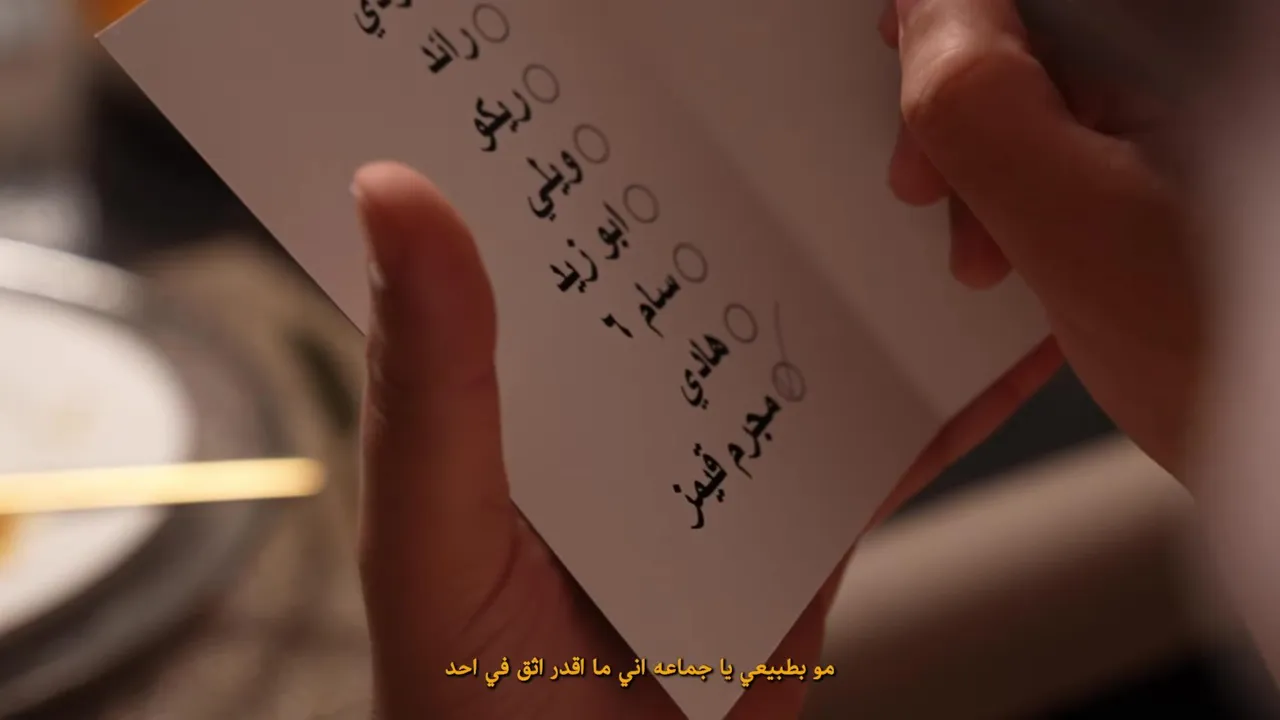 رائد
ريكو
فيني
ابو زيد
سام م
هادي
مجرم قيمز
مو بطبيعي يا جماعه اني ما اقدر اثق في احد